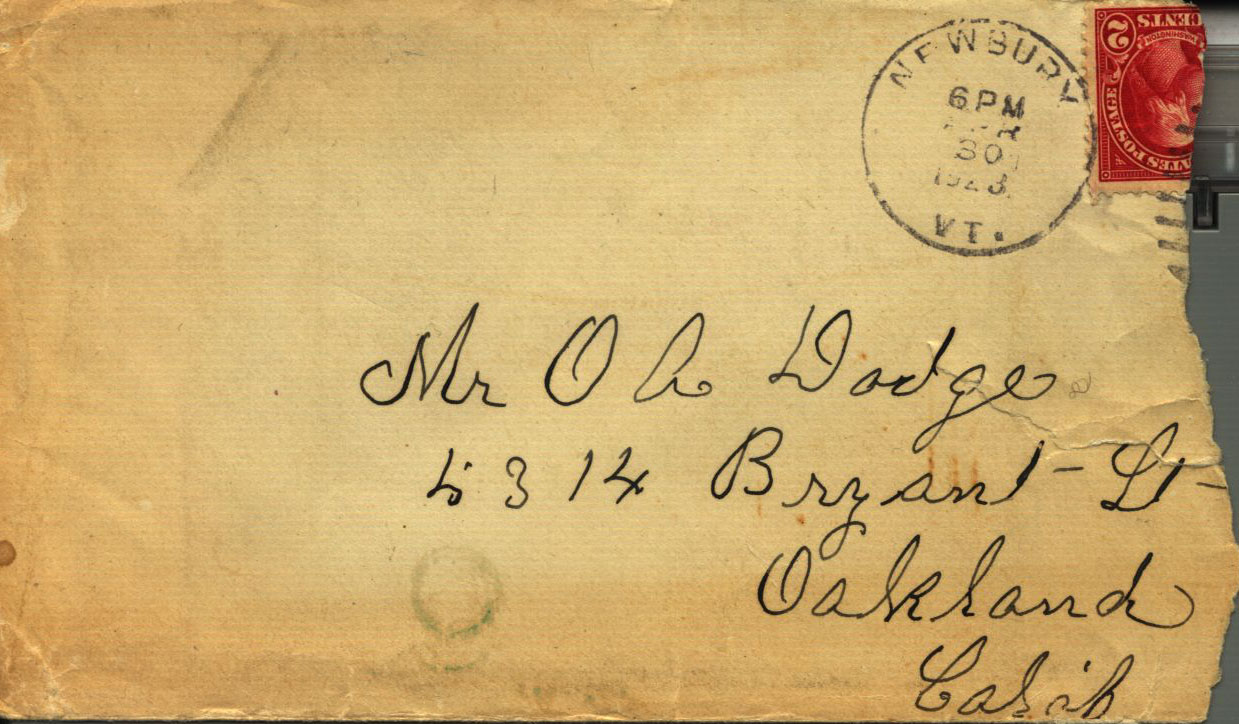 NEWBURY
6 PM
30
1923
VT.
2 CENTS
WASHINGTON
POSTAGE
Mr O A Dodge
5314 Bryant St
Oakland
Calif